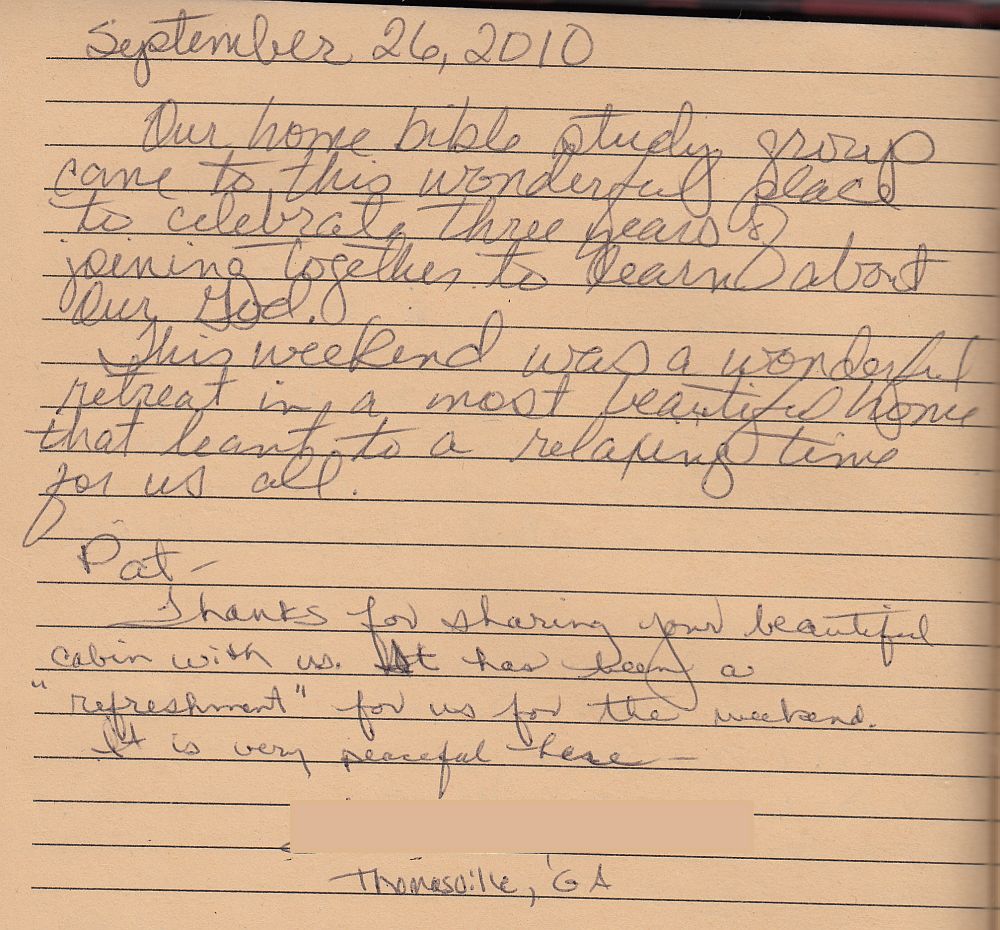 September 26, 2010
Our home bible study group
came to this wonderful place
to celebrate three years of
joining together to learn about
Our God.
This weekend was a wonderful
retreat in a most beautiful home
that leant to a relaxing time
for us all.
Pat -
Thanks for sharing your beautiful
cabin with us. It has been a
"refreshment" for us for the weekend.
It is very peaceful here -
Thomasville, GA